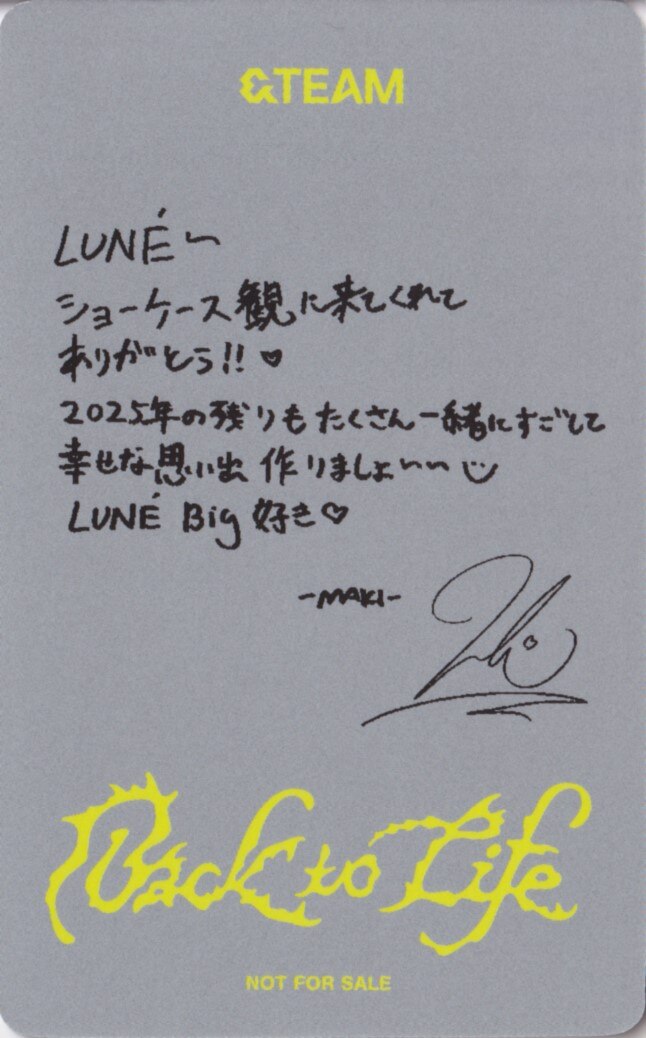 &TEAM
LUNÉ〜
ショーケース観に来てくれて
ありがとう!!♥
2025年の残りもたくさん一緒にすごして
幸せな思い出 作りましょ〜〜
LUNÉ Big 好き♡
-MAKI-
Back to Life
NOT FOR SALE